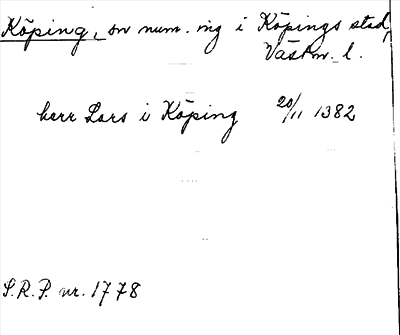 Köping, on num. ing i Köpings stad,
Västm. l.
herr Lars i Köping 20/11 1382
S.R.P. nr. 1778